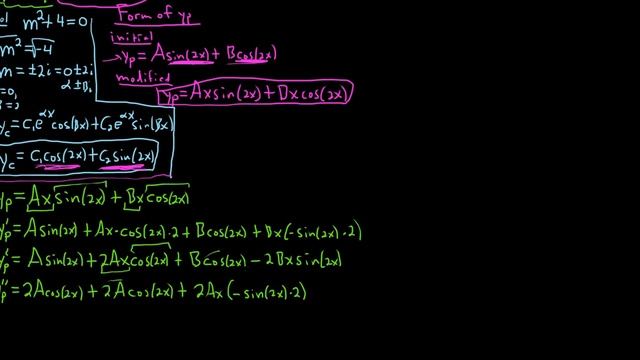 m²+4=0
√m² = √-4
m = ±2i = 0±2i
α±βi
y_c = C₁e^αx cos(βx) + C₂e^αx sin(βx)
y_c = C₁cos(2x) + C₂sin(2x)
Form of yp
initial
→ yp = Asin(2x) + Bcos(2x)
modified
yp = Axsin(2x) + Bxcos(2x)
yp = Ax sin(2x) + Bx cos(2x)
yp' = Asin(2x) + Ax·cos(2x)·2 + Bcos(2x) + Bx(-sin(2x)·2)
yp' = Asin(2x) + 2Axcos(2x) + Bcos(2x) - 2Bxsin(2x)
yp'' = 2Acos(2x) + 2Acos(2x) + 2Ax(-sin(2x)·2)